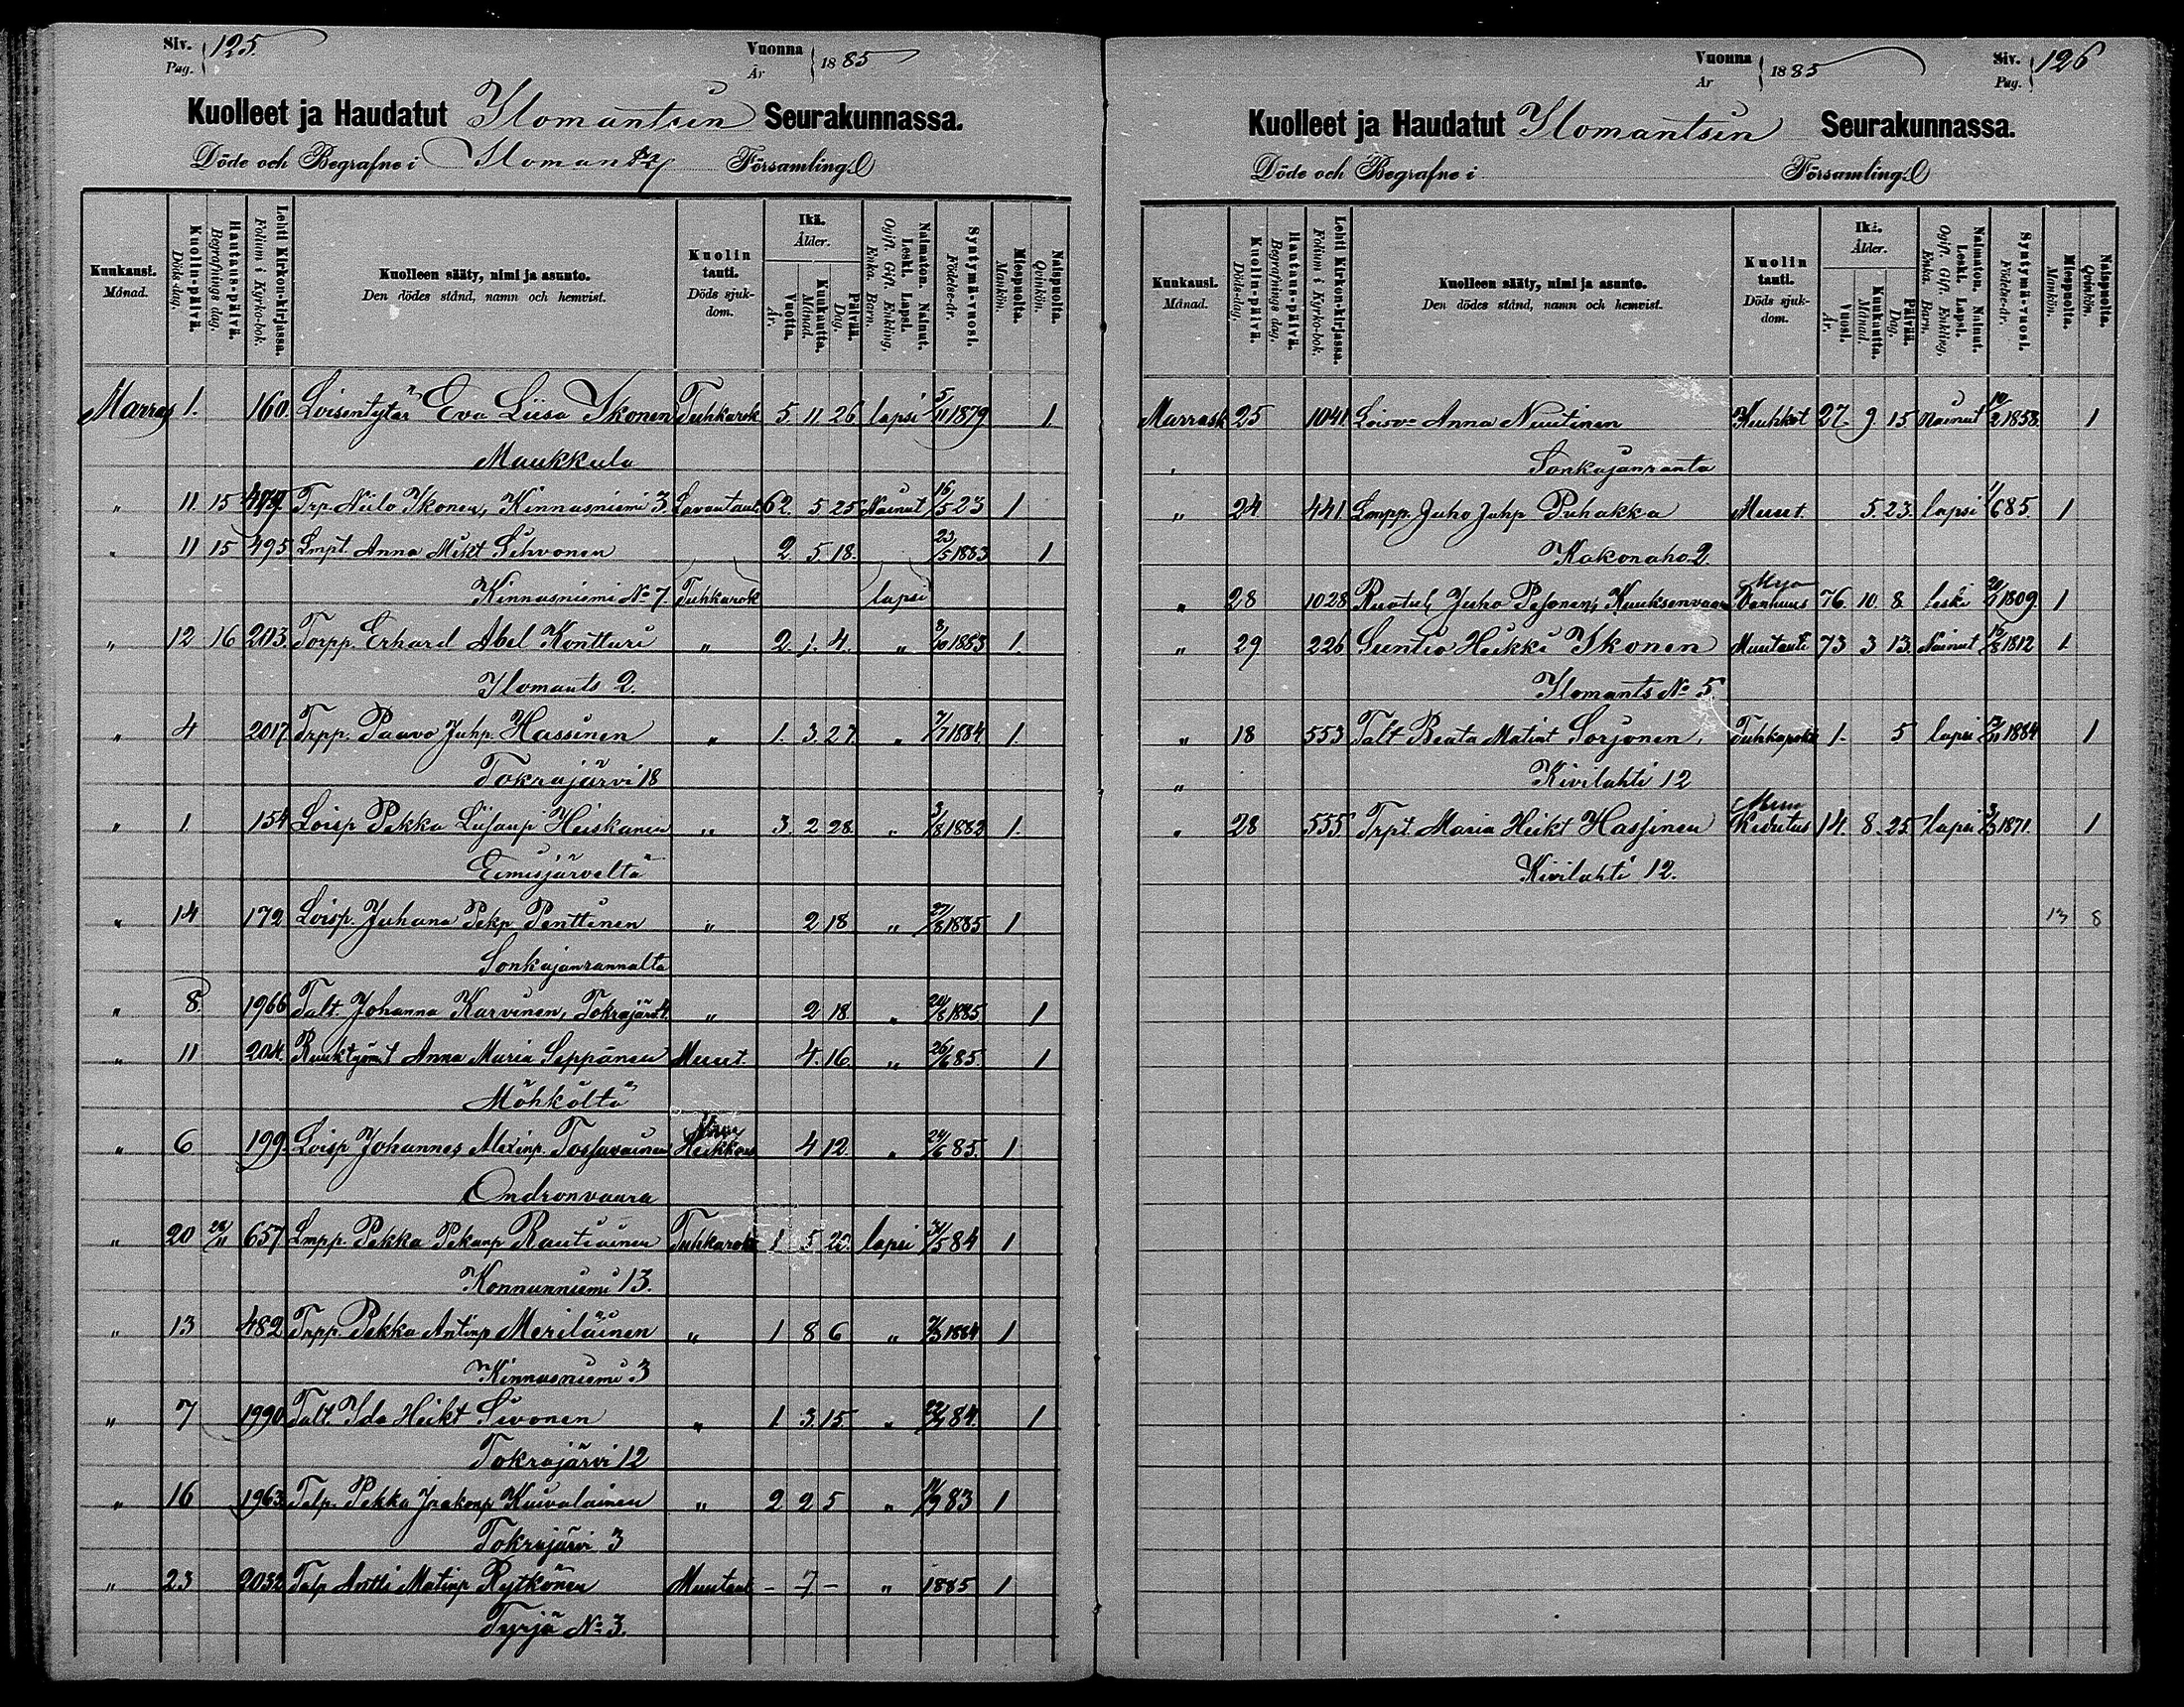 Siv. Pag. 125
Vuonna År 1885
Kuolleet ja Haudatut Ilomantsin Seurakunnassa.
Döde och Begrafne i Ilomants Församling.
Kuukausi. Månad.
Kuolin-päivä. Döds-dag.
Hautaus-päivä. Begrafnings dag.
Lehti Kirkon-kirjassa. Folium i Kyrko-bok.
Kuolleen sääty, nimi ja asunto.
Den dödes stånd, namn och hemvist.
Kuolin tauti. Döds sjukdom.
Ikä. Ålder.
Vuotta. År.
Kuukautta. Månad.
Päivää. Dag.
Naimaton. Nainut. Leski. Lapsi.
Ogift. Gift. Enkling. Enka. Barn.
Syntymä-vuosi. Födelse-år.
Miespuolta. Mankön.
Naispuolta. Qvinkön.
Marras 1. 160. Loisentytär Eva Liisa Ikonen Tuhkarok 5. 11. 26 lapsi 5/11 1879 1
Maukkula
" 11. 15 479 Trp. Niilo Ikonen, Kinnasniemi 3. Lavantaut. 62. 5 25 Nainut 16/5 23 1
" 11 15 495 Lmpt. Anna Mikt Sihvonen 2. 5. 18. 23/5 1883 1
Kinnasniemi No 7. Tuhkarok lapsi
" 12 16 203. Torpp. Erhard Abel Kontturi " 2. 1. 4. " 8/10 1883 1.
Ilomants 2.
" 4 2017 Trpp. Paavo Juhp. Hassinen " 1. 3. 27. " 7/7 1884 1.
Tokrajärvi 18
" 1. 154 Loisp Pekka Liisanp Heiskanen " 3. 2 28. " 3/8 1882 1.
Eimisjärveltä
" 14 172 Loisp. Juhana Pekp Penttinen " 2 18 " 27/8 1885 1
Sonkajanrannalta
" 8. 1966 Talt. Johanna Karvinen, Tokrajärv. " 2 18 " 20/8 1885 1
" 11 204. Ruuktyömt Anna Maria Seppänen Muut. 4. 16. " 26/6 85. 1
Möhköltä
" 6 199. Loisp Johannes Tossavainen Heikkous 4 12. " 24/6 85. 1
Ondronvaara
" 20 22/11 657 Lmpp. Pekka Pekanp Rautiainen Tuhkarok 1 5 20. lapsi 31/5 84 1
Konnunniemi 13.
" 13 482 Trpp. Pekka Antinp Meriläinen " 1 8 6 " 7/3 1884 1
Kinnasniemi 3
" 7 1990 Talt. Ida Heikt Sivonen " 1. 3. 15. " 22/7 84. 1
Tokrajärvi 12
" 16 1963. Talp. Pekka Jaakonp Kuivalainen " 2 2 5 " 11/9 83 1
Tokrajärvi 3
" 23 2032 Talp Antti Matinp Rytkönen Muutaut - 7 - " 1885 1
Tyrjä No 3.
Vuonna År 1885
Siv. Pag. 126
Kuolleet ja Haudatut Ilomantsin Seurakunnassa.
Döde och Begrafne i Församling.
Kuukausi. Månad.
Kuolin-päivä. Döds-dag.
Hautaus-päivä. Begrafnings dag.
Lehti Kirkon-kirjassa. Folium i Kyrko-bok.
Kuolleen sääty, nimi ja asunto.
Den dödes stånd, namn och hemvist.
Kuolin tauti. Döds sjukdom.
Ikä. Ålder.
Vuosi. År.
Kuukautta. Månad.
Päivää. Dag.
Naimaton. Nainut. Leski. Lapsi.
Ogift. Gift. Enkling. Enka. Barn.
Syntymä-vuosi. Födelse-år.
Miespuolta. Mankön.
Naispuolta. Qvinkön.
Marrask 25 1041. Loisv Anna Nuutinen Keuhkot 27. 9. 15 Nainut 10/2 1858. 1
Sonkajanranta
" 24 441 Lmpp. Juho Juhp Puhakka Muut. 5. 23. lapsi 1/6 85. 1
Kakonaho 2.
" 28 1028 Ruotul. Juho Pesonen, Kuuksenvaara Vanhuus 76. 10. 8. leski 20/1 1809 1
" 29 226 Suntio Heikki Ikonen Muutauti 73 3 13. Nainut 16/8 1812 1.
Ilomants No 5.
" 18 553 Talt Beata Matint Sorjonen, Tuhkarok 1. 5 lapsi 13/11 1884 1
" Kivilahti 12
" 28 555 Trpt. Maria Heikt Hassinen Kivutus 14. 8. 25. lapsi 3/3 1871. 1
Kivilahti 12.
13 8